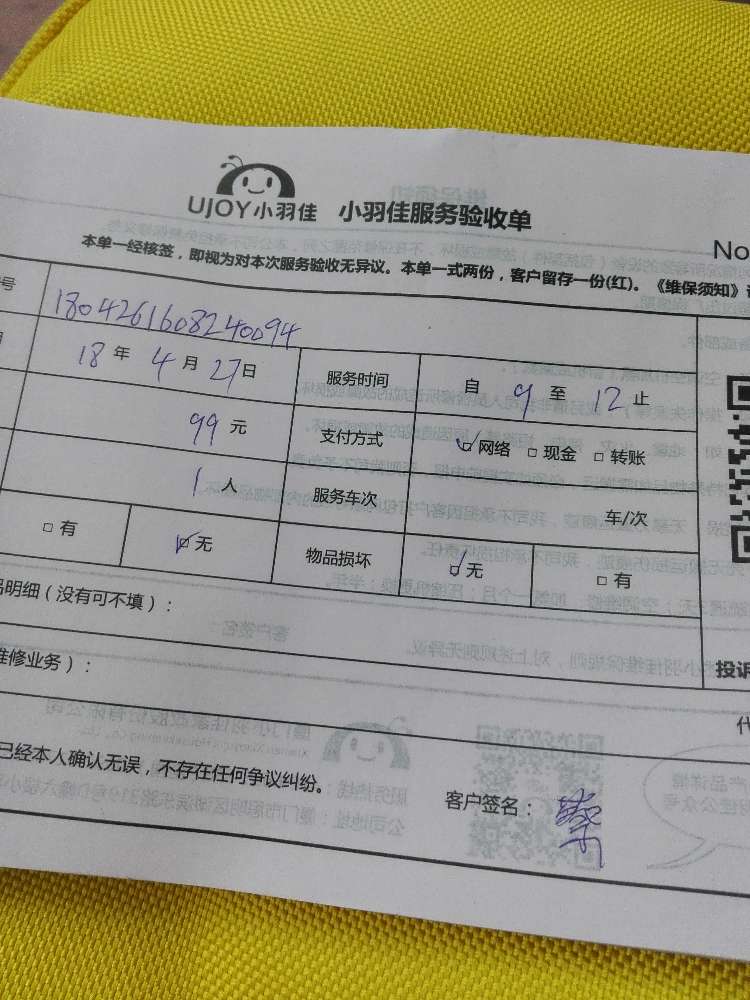 UJOY小羽佳 小羽佳服务验收单
No
本单一经核签，即视为对本次服务验收无异议。本单一式两份，客户留存一份(红)。《维保须知》
号 1804261608240094
18年4月27日 服务时间 自9至12止
99元 支付方式 网络 现金 转账
1人 服务车次 车/次
有 无 物品损坏 无 有
明细（没有可不填）：
维修业务）：
投诉
已经本人确认无误，不存在任何争议纠纷。
客户签名：